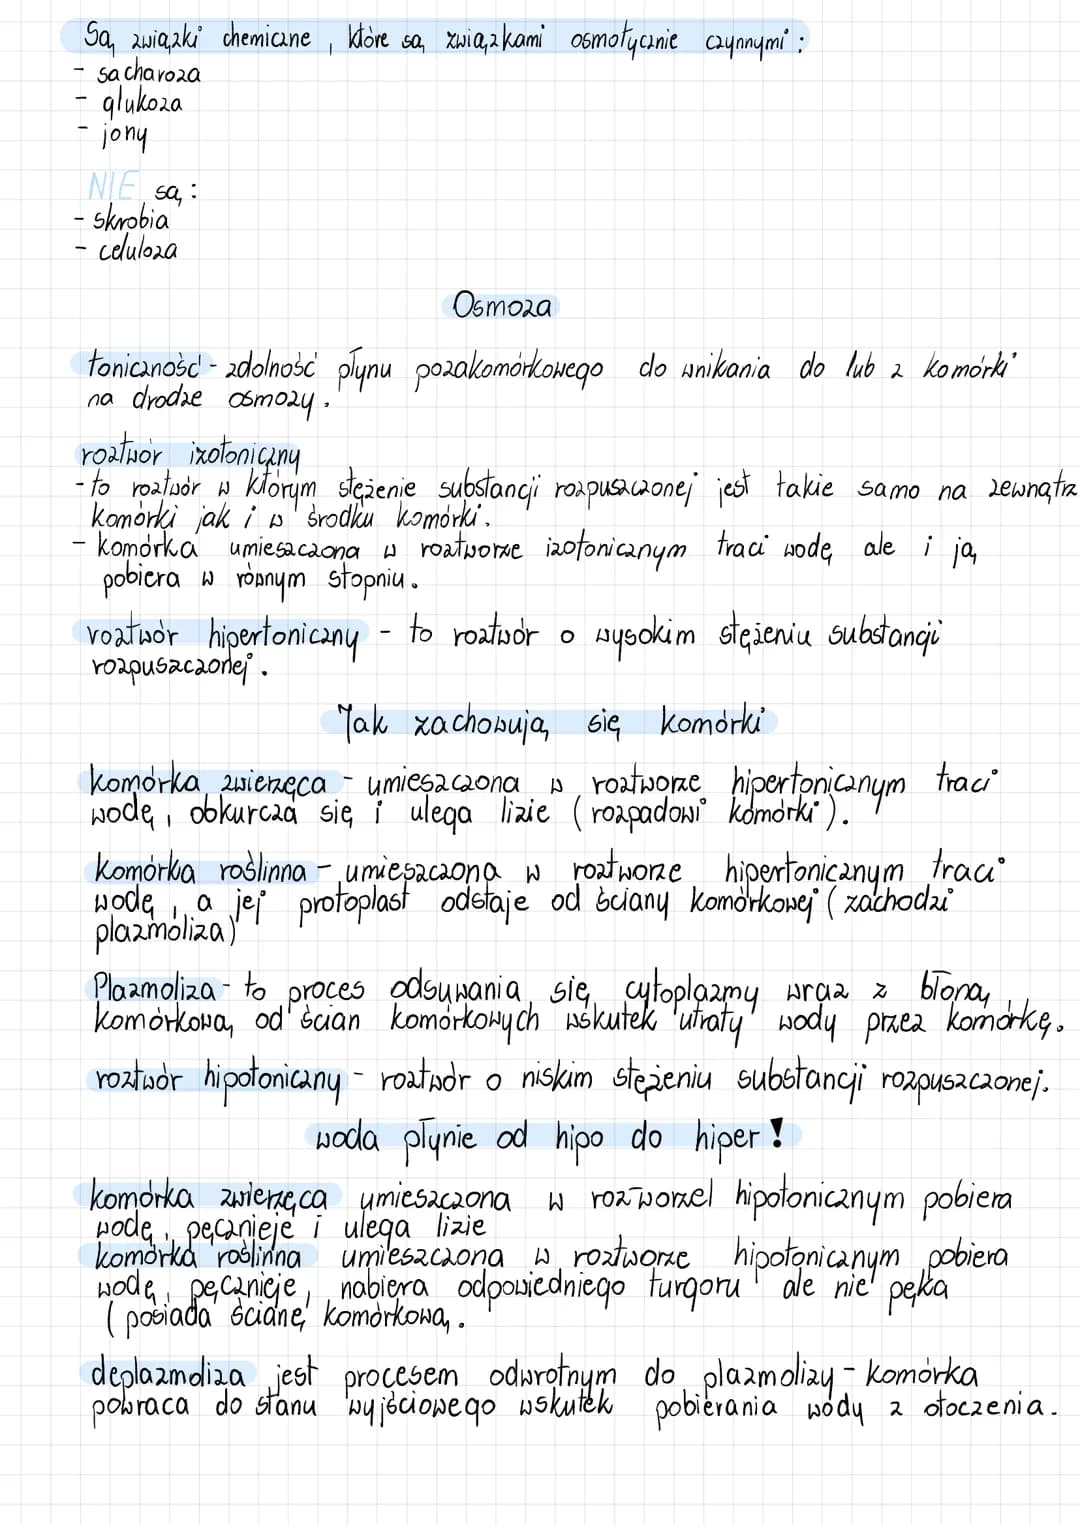 Są związki chemiczne, które są związkami osmotycznie czynnymi:
- sacharoza
- glukoza
- jony
NIE są:
- skrobia
- celuloza
Osmoza
toniczność - zdolność płynu pozakomórkowego do wnikania do lub z komórki
na drodze osmozy.
roztwór izotoniczny
- to roztwór w którym stężenie substancji rozpuszczonej jest takie samo na zewnątrz
komórki jak i w środku komórki.
- komórka umieszczona w roztworze izotonicznym traci wodę ale i ją
pobiera w równym stopniu.
roztwór hipertoniczny - to roztwór o wysokim stężeniu substancji
rozpuszczonej.
Jak zachowują się komórki
komórka zwierzęca - umieszczona w roztworze hipertonicznym traci
wodę, obkurcza się i ulega lizie (rozpadowi komórki).
Komórka roślinna - umieszczona w roztworze hipertonicznym traci
wodę, a jej protoplast odstaje od ściany komórkowej (zachodzi
plazmoliza)
Plazmoliza - to proces odsuwania się cytoplazmy wraz z błoną
komórkową od ścian komórkowych wskutek utraty wody przez komórkę.
roztwór hipotoniczny - roztwór o niskim stężeniu substancji rozpuszczonej.
woda płynie od hipo do hiper!
komórka zwierzęca umieszczona w roztworzel hipotonicznym pobiera
wodę, pęcznieje i ulega lizie
komórka roślinna umieszczona w roztworze hipotonicznym pobiera
wodę, pęcznieje, nabiera odpowiedniego turgoru ale nie pęka
(posiada ścianę komórkową.
deplazmoliza jest procesem odwrotnym do plazmolizy - komórka
powraca do stanu wyjściowego wskutek pobierania wody z otoczenia.